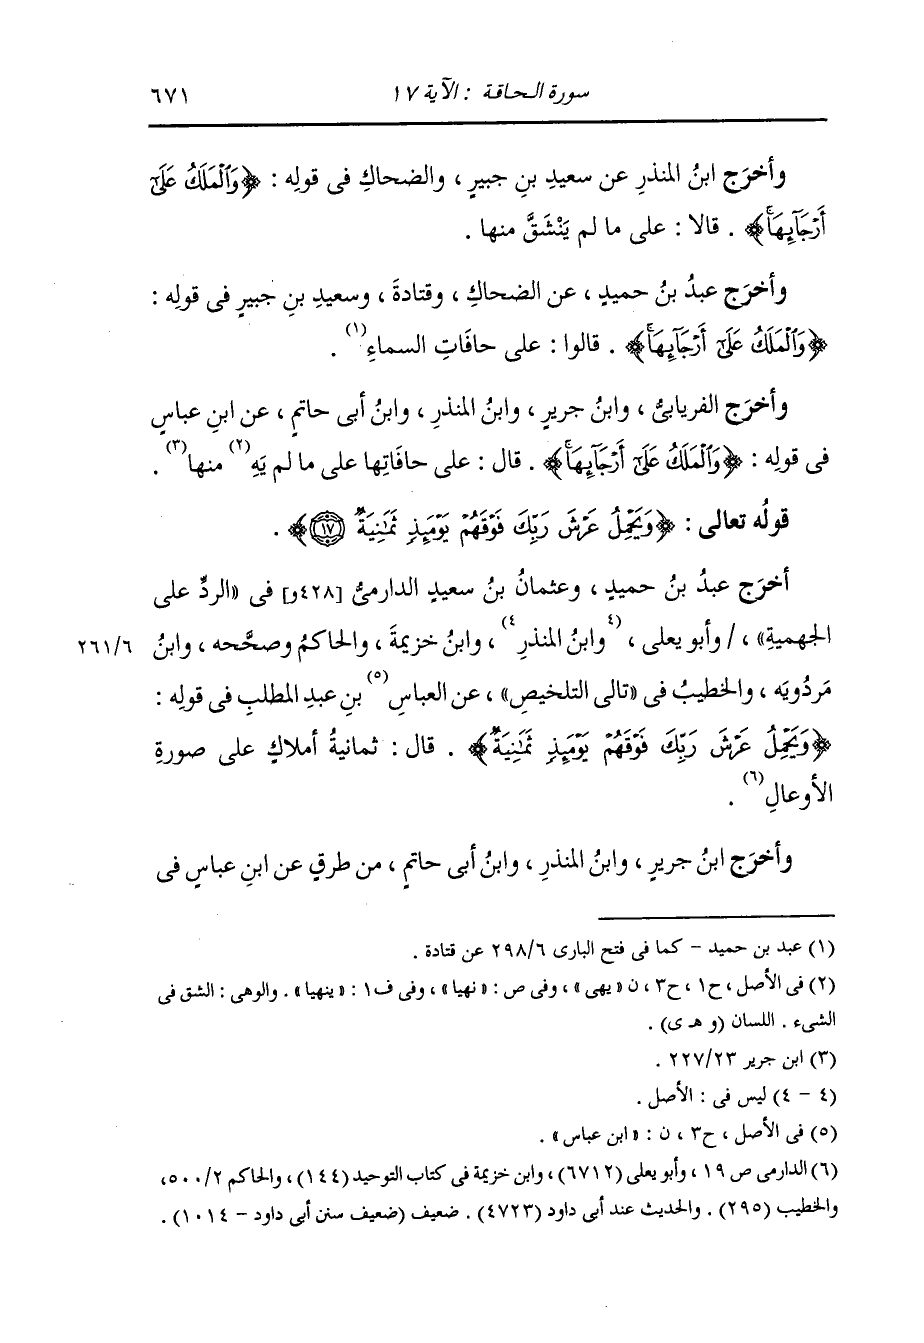 سورة الحاقة : الآية ١٧ ٦٧١
وأخرَج ابنُ المنذرِ عن سعيدِ بنِ جبيرٍ ، والضحاكِ فى قولِه : ﴿وَٱلْمَلَكُ عَلَىٰٓ
أَرْجَآئِهَاۚ﴾ . قالا : على ما لم يَنْشَقَّ منها .
وأخرَج عبدُ بنُ حميدٍ ، عن الضحاكِ ، وقتادةَ ، وسعيدِ بنِ جبيرٍ فى قولِه :
﴿وَٱلْمَلَكُ عَلَىٰٓ أَرْجَآئِهَاۚ﴾ . قالوا : على حافَاتِ السماءِ(١) .
وأخرَج الفريابىُّ ، وابنُ جريرٍ ، وابنُ المنذرِ ، وابنُ أبى حاتمٍ ، عن ابنِ عباسٍ
فى قولِه : ﴿وَٱلْمَلَكُ عَلَىٰٓ أَرْجَآئِهَاۚ﴾ . قال : على حافَاتِها على ما لم يَهِ(٢) منها(٣) .
قولُه تعالى : ﴿وَيَحْمِلُ عَرْشَ رَبِّكَ فَوْقَهُمْ يَوْمَئِذٍ ثَمَٰنِيَةٌ ١٧﴾ .
أخرَج عبدُ بنُ حميدٍ ، وعثمانُ بنُ سعيدٍ الدارمىُّ [٤٢٨و] فى «الردِّ على
الجهميةِ» ، / وأبو يعلى ، (٤وابنُ المنذرِ٤) ، وابنُ خزيمةَ ، والحاكمُ وصحَّحه ، وابنُ ٢٦١/٦
مَردُويَه ، والخطيبُ فى «تالى التلخيصِ» ، عن العباسِ(٥) بنِ عبدِ المطلبِ فى قولِه :
﴿وَيَحْمِلُ عَرْشَ رَبِّكَ فَوْقَهُمْ يَوْمَئِذٍ ثَمَٰنِيَةٌ﴾ . قال : ثمانيةُ أملاكٍ على صورةِ
الأوعالِ(٦) .
وأخرَج ابنُ جريرٍ ، وابنُ المنذرِ ، وابنُ أبى حاتمٍ ، من طرقٍ عن ابنِ عباسٍ فى
(١) عبد بن حميد - كما فى فتح البارى ٢٩٨/٦ عن قتادة .
(٢) فى الأصل ، ح١ ، ح٣ ، ن «يهى» ، وفى ص : «نهيا» ، وفى ف١ : «ينهيا» . والوهى : الشق فى
الشىء . اللسان (و هـ ى) .
(٣) ابن جرير ٢٢٧/٢٣ .
(٤ - ٤) ليس فى : الأصل .
(٥) فى الأصل ، ح٣ ، ن : «ابن عباس» .
(٦) الدارمى ص ١٩ ، وأبو يعلى (٦٧١٢) ، وابن خزيمة فى كتاب التوحيد (١٤٤) ، والحاكم ٥٠٠/٢ ،
والخطيب (٢٩٥) . والحديث عند أبى داود (٤٧٢٣) . ضعيف (ضعيف سنن أبى داود - ١٠١٤) .